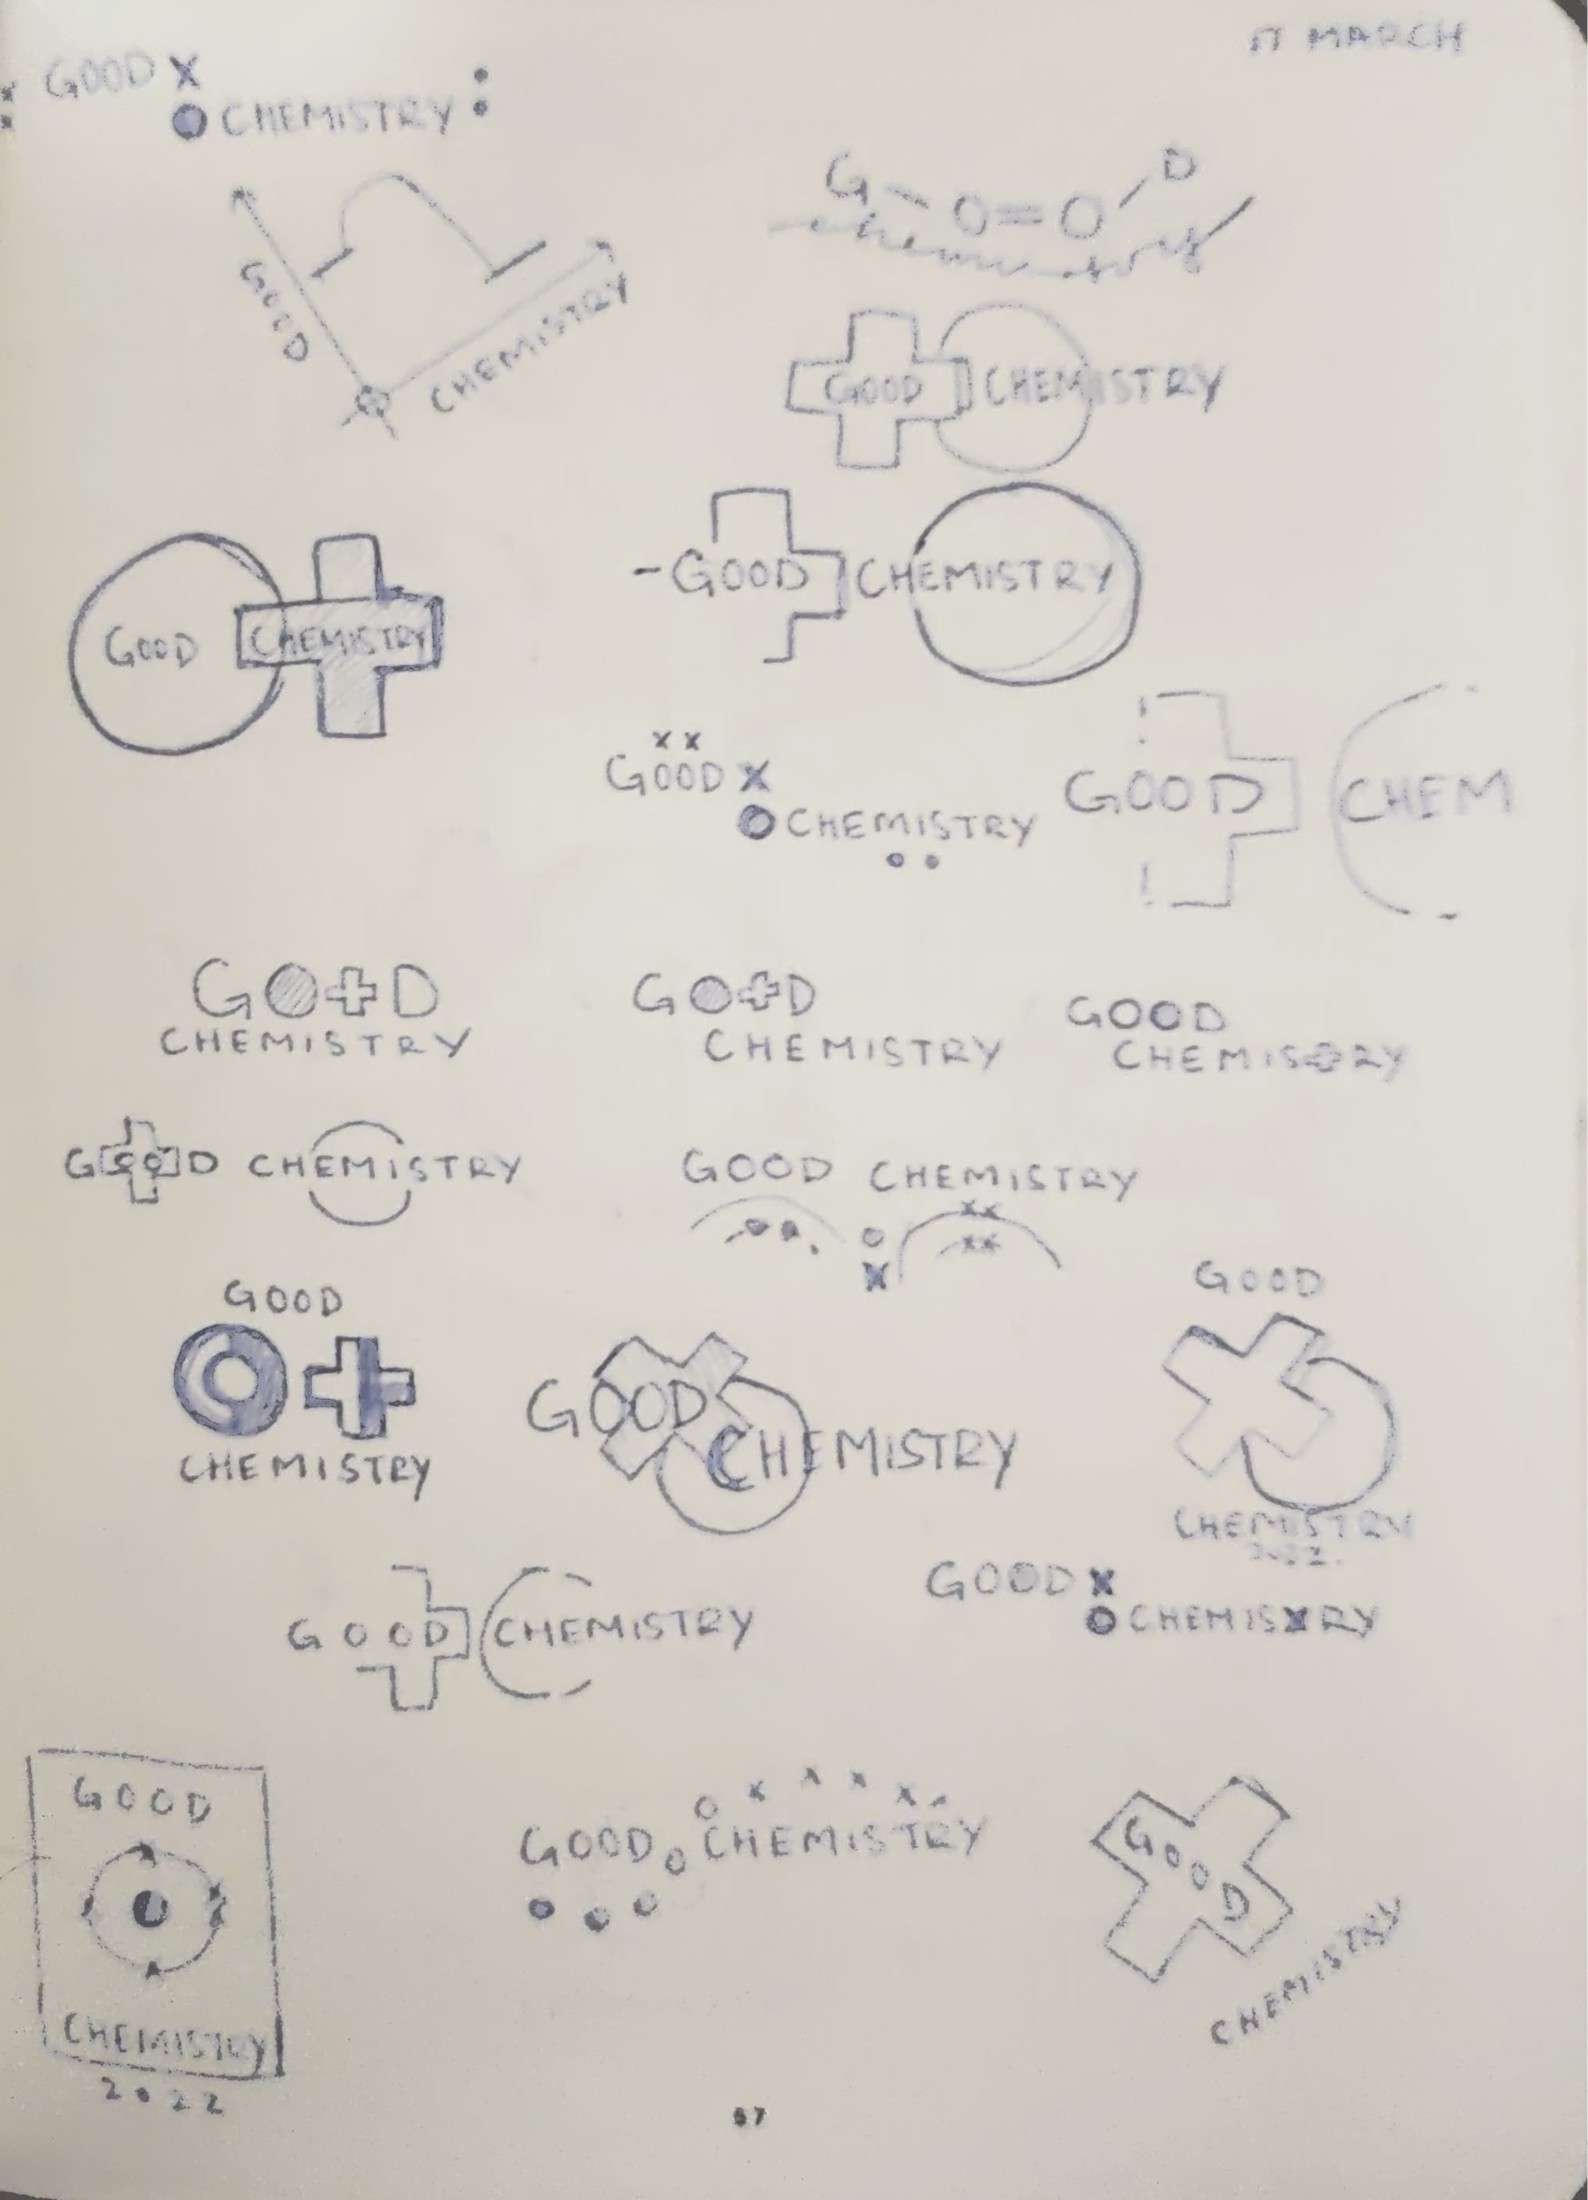 MARCH
GOOD X
CHEMISTRY :
G-O=O/D
chemistry
GOOD
CHEMISTRY
GOOD CHEMISTRY
GOOD CHEMISTRY
-GOOD CHEMISTRY
x x
GOOD X
O CHEMISTRY
GOOD CHEM
GO+D
CHEMISTRY
GO+D
CHEMISTRY
GOOD
CHEMIS+RY
GOOD CHEMISTRY
GOOD CHEMISTRY
GOOD
O+
CHEMISTRY
GOOD
CHEMISTRY
GOOD
CHEMISTRY
2022.
GOOD CHEMISTRY
GOOD X
O CHEMISXRY
GOOD
CHEMISTRY
2022
GOOD CHEMISTRY
GOOD
CHEMISTRY
57